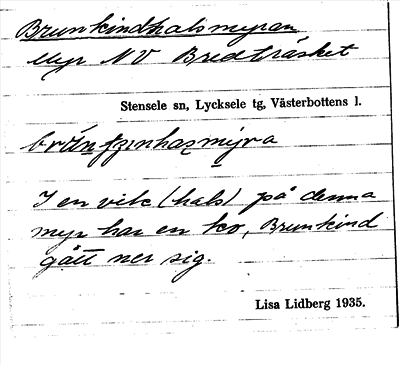 Brunkindhalsmyran
Myr NV Bredträsket
Stensele sn, Lycksele tg, Västerbottens l.
I en vik (hals) på denna
myr har en ko, Brunkind
gått ner sig.
Lisa Lidberg 1935.